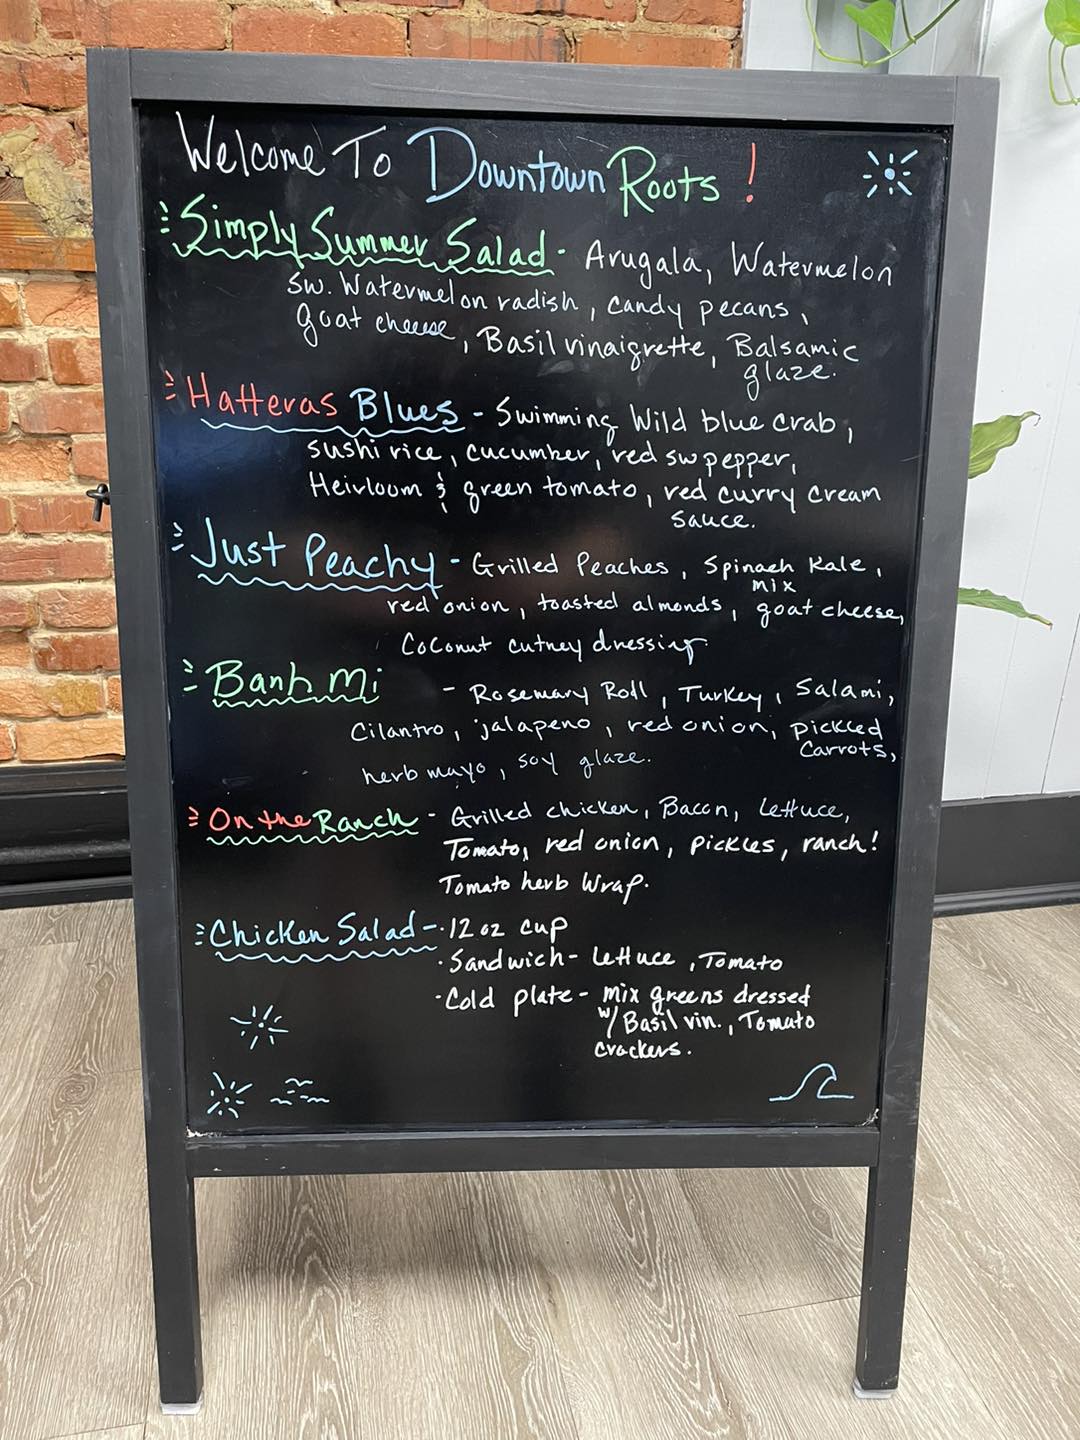 Welcome To Downtown Roots!
Simply Summer Salad - Arugala, Watermelon
sw. Watermelon radish, candy pecans,
goat cheese, Basil vinaigrette, Balsamic
glaze.
Hatteras Blues - Swimming Wild blue crab,
sushi rice, cucumber, red sw pepper,
Heirloom & green tomato, red curry cream
sauce.
Just Peachy - Grilled Peaches, Spinach Kale,
mix
red onion, toasted almonds, goat cheese,
Coconut cutney dressing.
Banh Mi - Rosemary Roll, Turkey, Salami,
Cilantro, jalapeno, red onion, pickled
Carrots,
herb mayo, soy glaze.
On the Ranch - Grilled chicken, Bacon, Lettuce,
Tomato, red onion, pickles, ranch!
Tomato herb Wrap.
Chicken Salad - · 12 oz cup
· Sandwich - Lettuce, Tomato
· Cold plate - mix greens dressed
w/ Basil vin., Tomato
crackers.